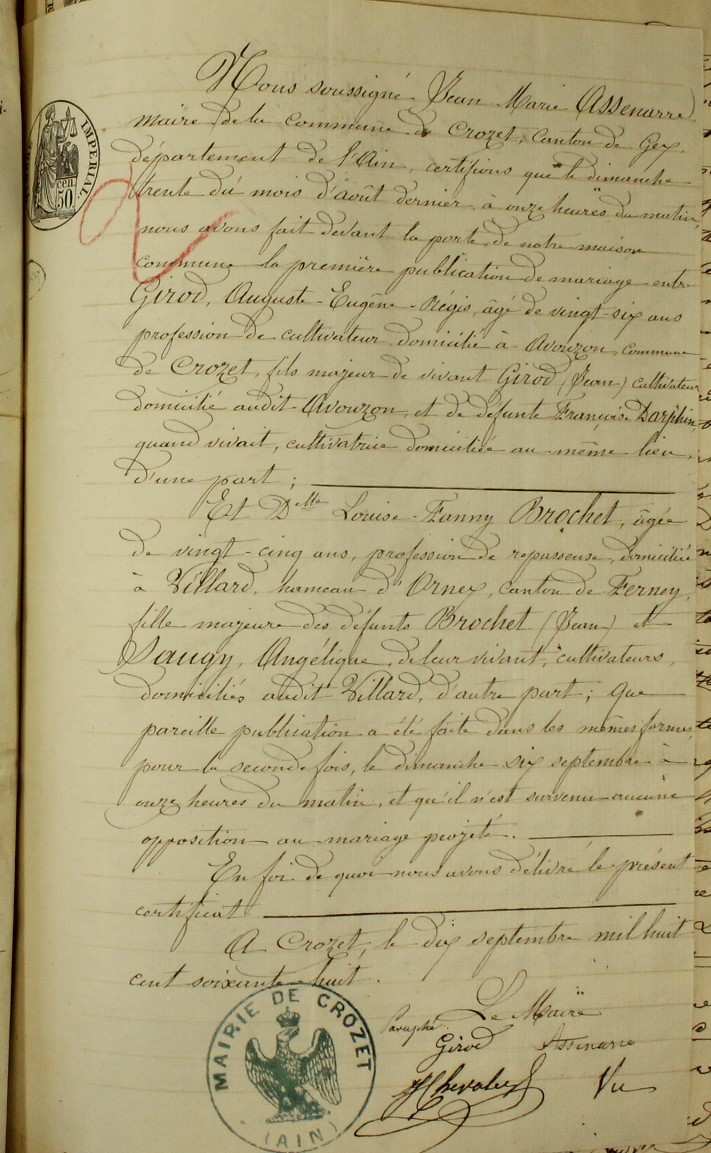 IMPERIAL
50
cen
Nous soussigné Jean Marie Assenarre
maire de la commune de Crozet, canton de Gex,
département de l'Ain, certifions que le dimanche
trente du mois d'août dernier, à onze heures du matin,
nous avons fait devant la porte de notre maison
commune la première publication de mariage entre
Girod, Auguste-Eugène-Régis, âgé de vingt-six ans
profession de cultivateur domicilié à Avouzon, commune
de Crozet, fils majeur de vivant Girod (Jean) cultivateur
domicilié audit-Avouzon, et de défunte Françoise Darphin,
quand vivait, cultivatrice domiciliée au même lieu,
d'une part;
Et Delle Louise-Fanny Brochet, âgée
de vingt-cinq ans, profession de repasseuse, domiciliée
à Villard, hameau d'Ornex, canton de Ferney,
fille majeure des défunts Brochet (Jean) et
Saugy, Angélique, de leur vivant, cultivateurs,
domiciliés audit-Villard, d'autre part; que
pareille publication a été faite dans les mêmes formes,
pour la seconde fois, le dimanche six septembre à
onze heures du matin, et qu'il n'est survenu aucune
opposition au mariage projeté.
En foi de quoi nous avons délivré le présent
certificat
A Crozet, le dix septembre mil huit
cent soixante-huit.
Le Maire
Paraphé
Girod Assenarre
Vu
MAIRIE DE CROZET
(AIN)